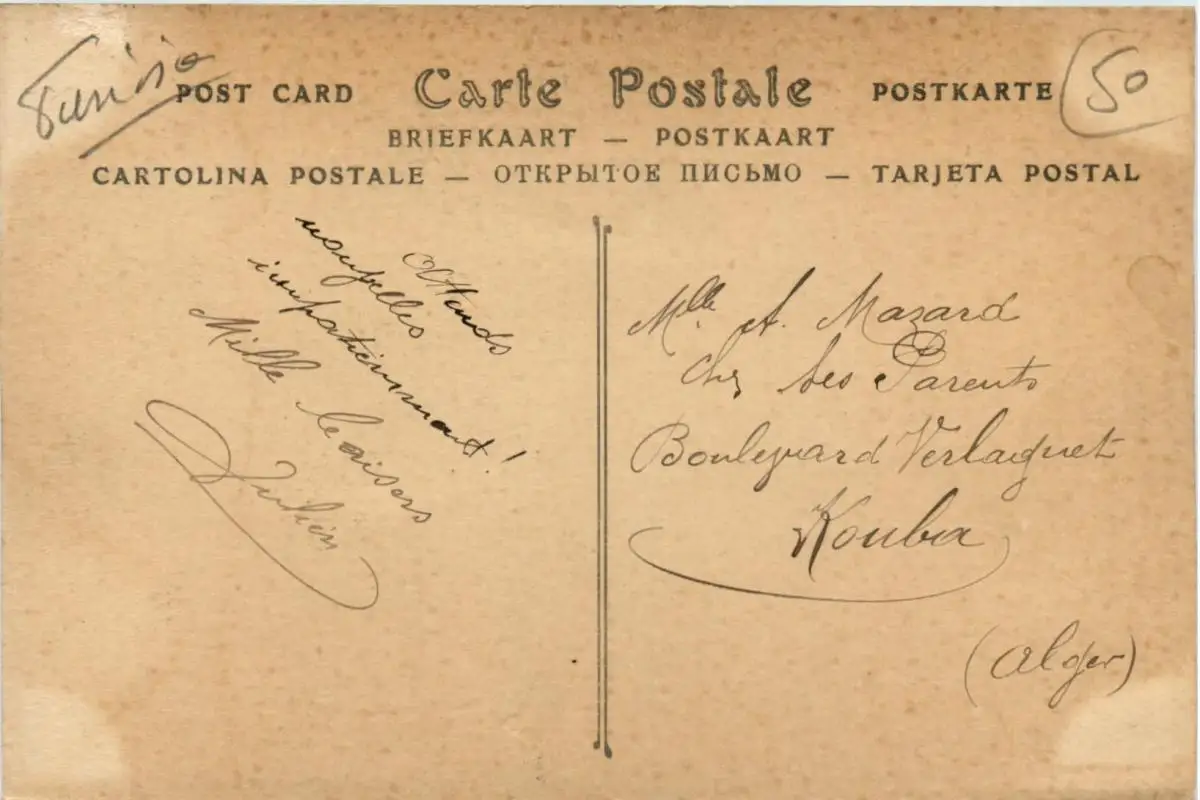 Tunisie
50
POST CARD Carte Postale POSTKARTE
BRIEFKAART — POSTKAART
CARTOLINA POSTALE — ОТКРЫТОЕ ПИСЬМО — TARJETA POSTAL
Attends
nouvelles
impatiemment!
Mille baisers
Julien
Mlle A. Mazard
chez ses Parents
Boulevard Verlaquet
Kouba
(Alger)